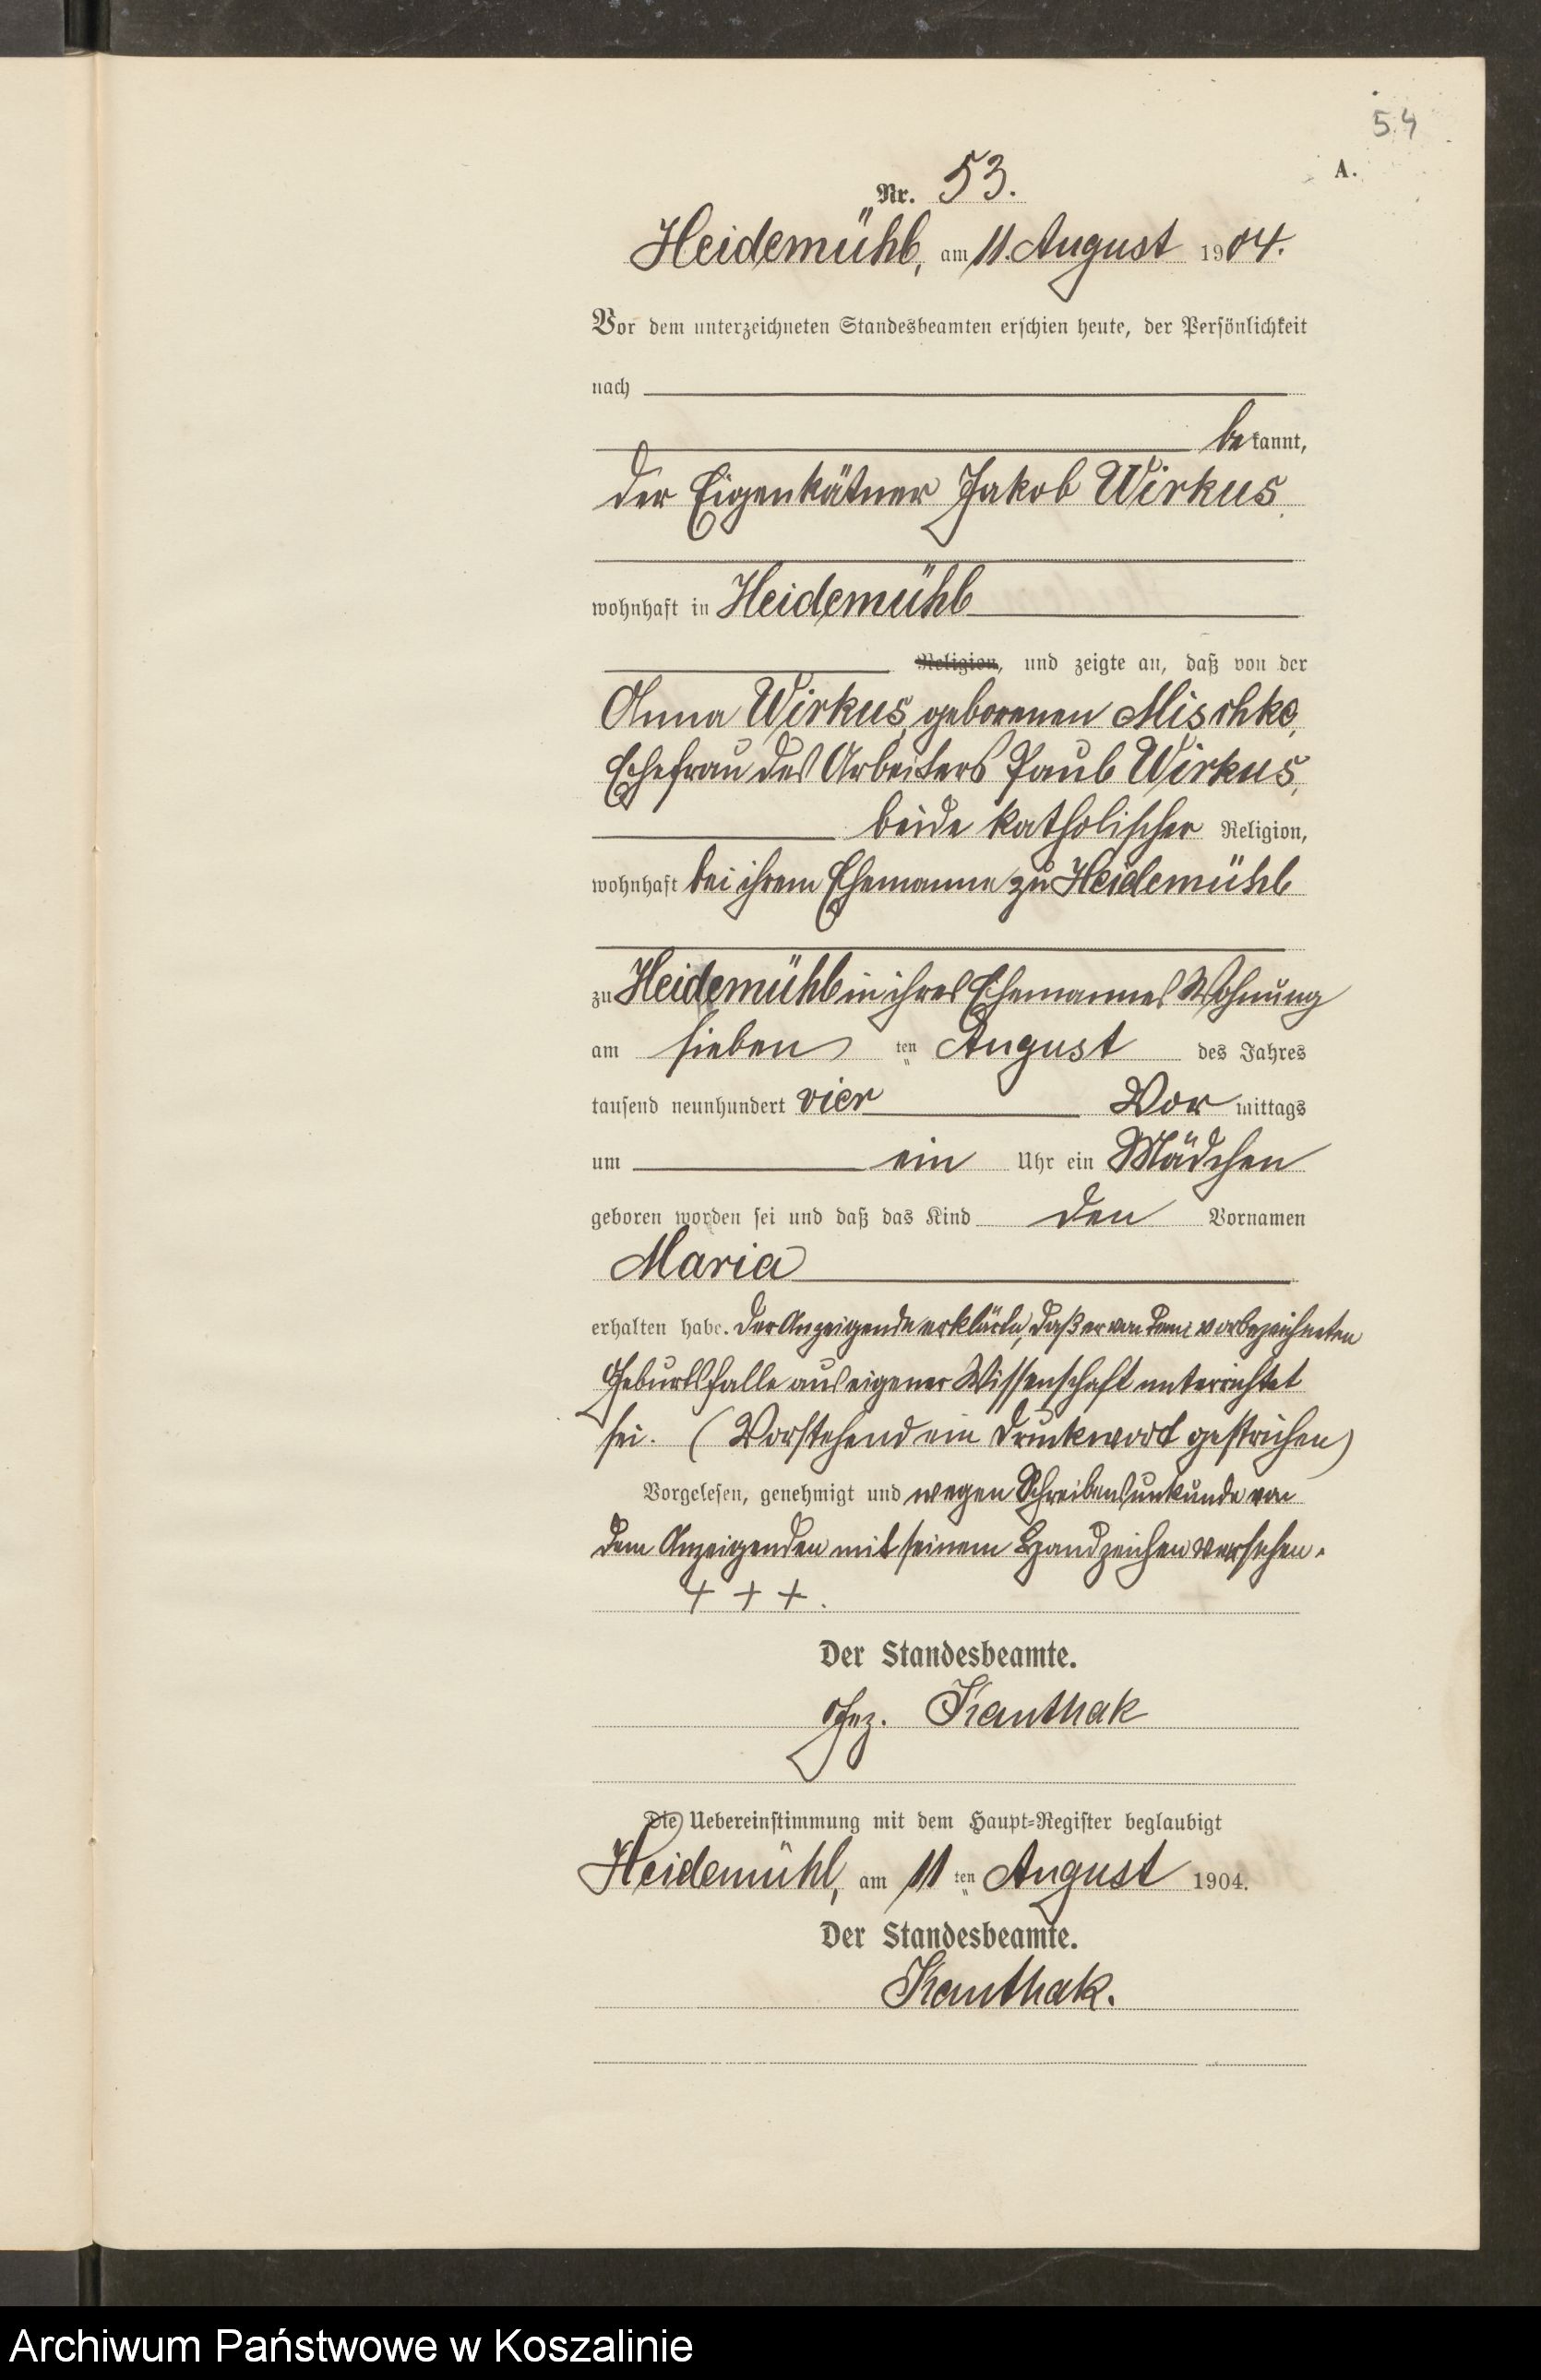 54
A.
Nr. 53.
Heidemühl, am 11. August 1904.
Vor dem unterzeichneten Standesbeamten erschien heute, der Persönlichkeit
nach
bekannt,
der Eigenkätner Jakob Wirkus,
wohnhaft in Heidemühl
Religion, und zeigte an, daß von der
Anna Wirkus, geborenen Mischke,
Ehefrau des Arbeiters Paul Wirkus,
beide katholischer Religion,
wohnhaft bei ihrem Ehemanne zu Heidemühl
zu Heidemühl in ihres Ehemannes Wohnung
am sieben ten August des Jahres
tausend neunhundert vier Vor mittags
um ein Uhr ein Mädchen
geboren worden sei und daß das Kind den Vornamen
Maria
erhalten habe. Der Anzeigende erklärte, daß er von dem vorbezeichneten
Geburtsfalle aus eigener Wissenschaft unterrichtet
sei. (Vorstehend ein Druckwort gestrichen)
Vorgelesen, genehmigt und wegen Schreibensunkunde von
dem Anzeigenden mit seinem Handzeichen versehen.
+ + +.
Der Standesbeamte.
Gez. Kanthak
Die Uebereinstimmung mit dem Haupt-Register beglaubigt
Heidemühl, am 11 ten August 1904.
Der Standesbeamte.
Kanthak.
Archiwum Państwowe w Koszalinie